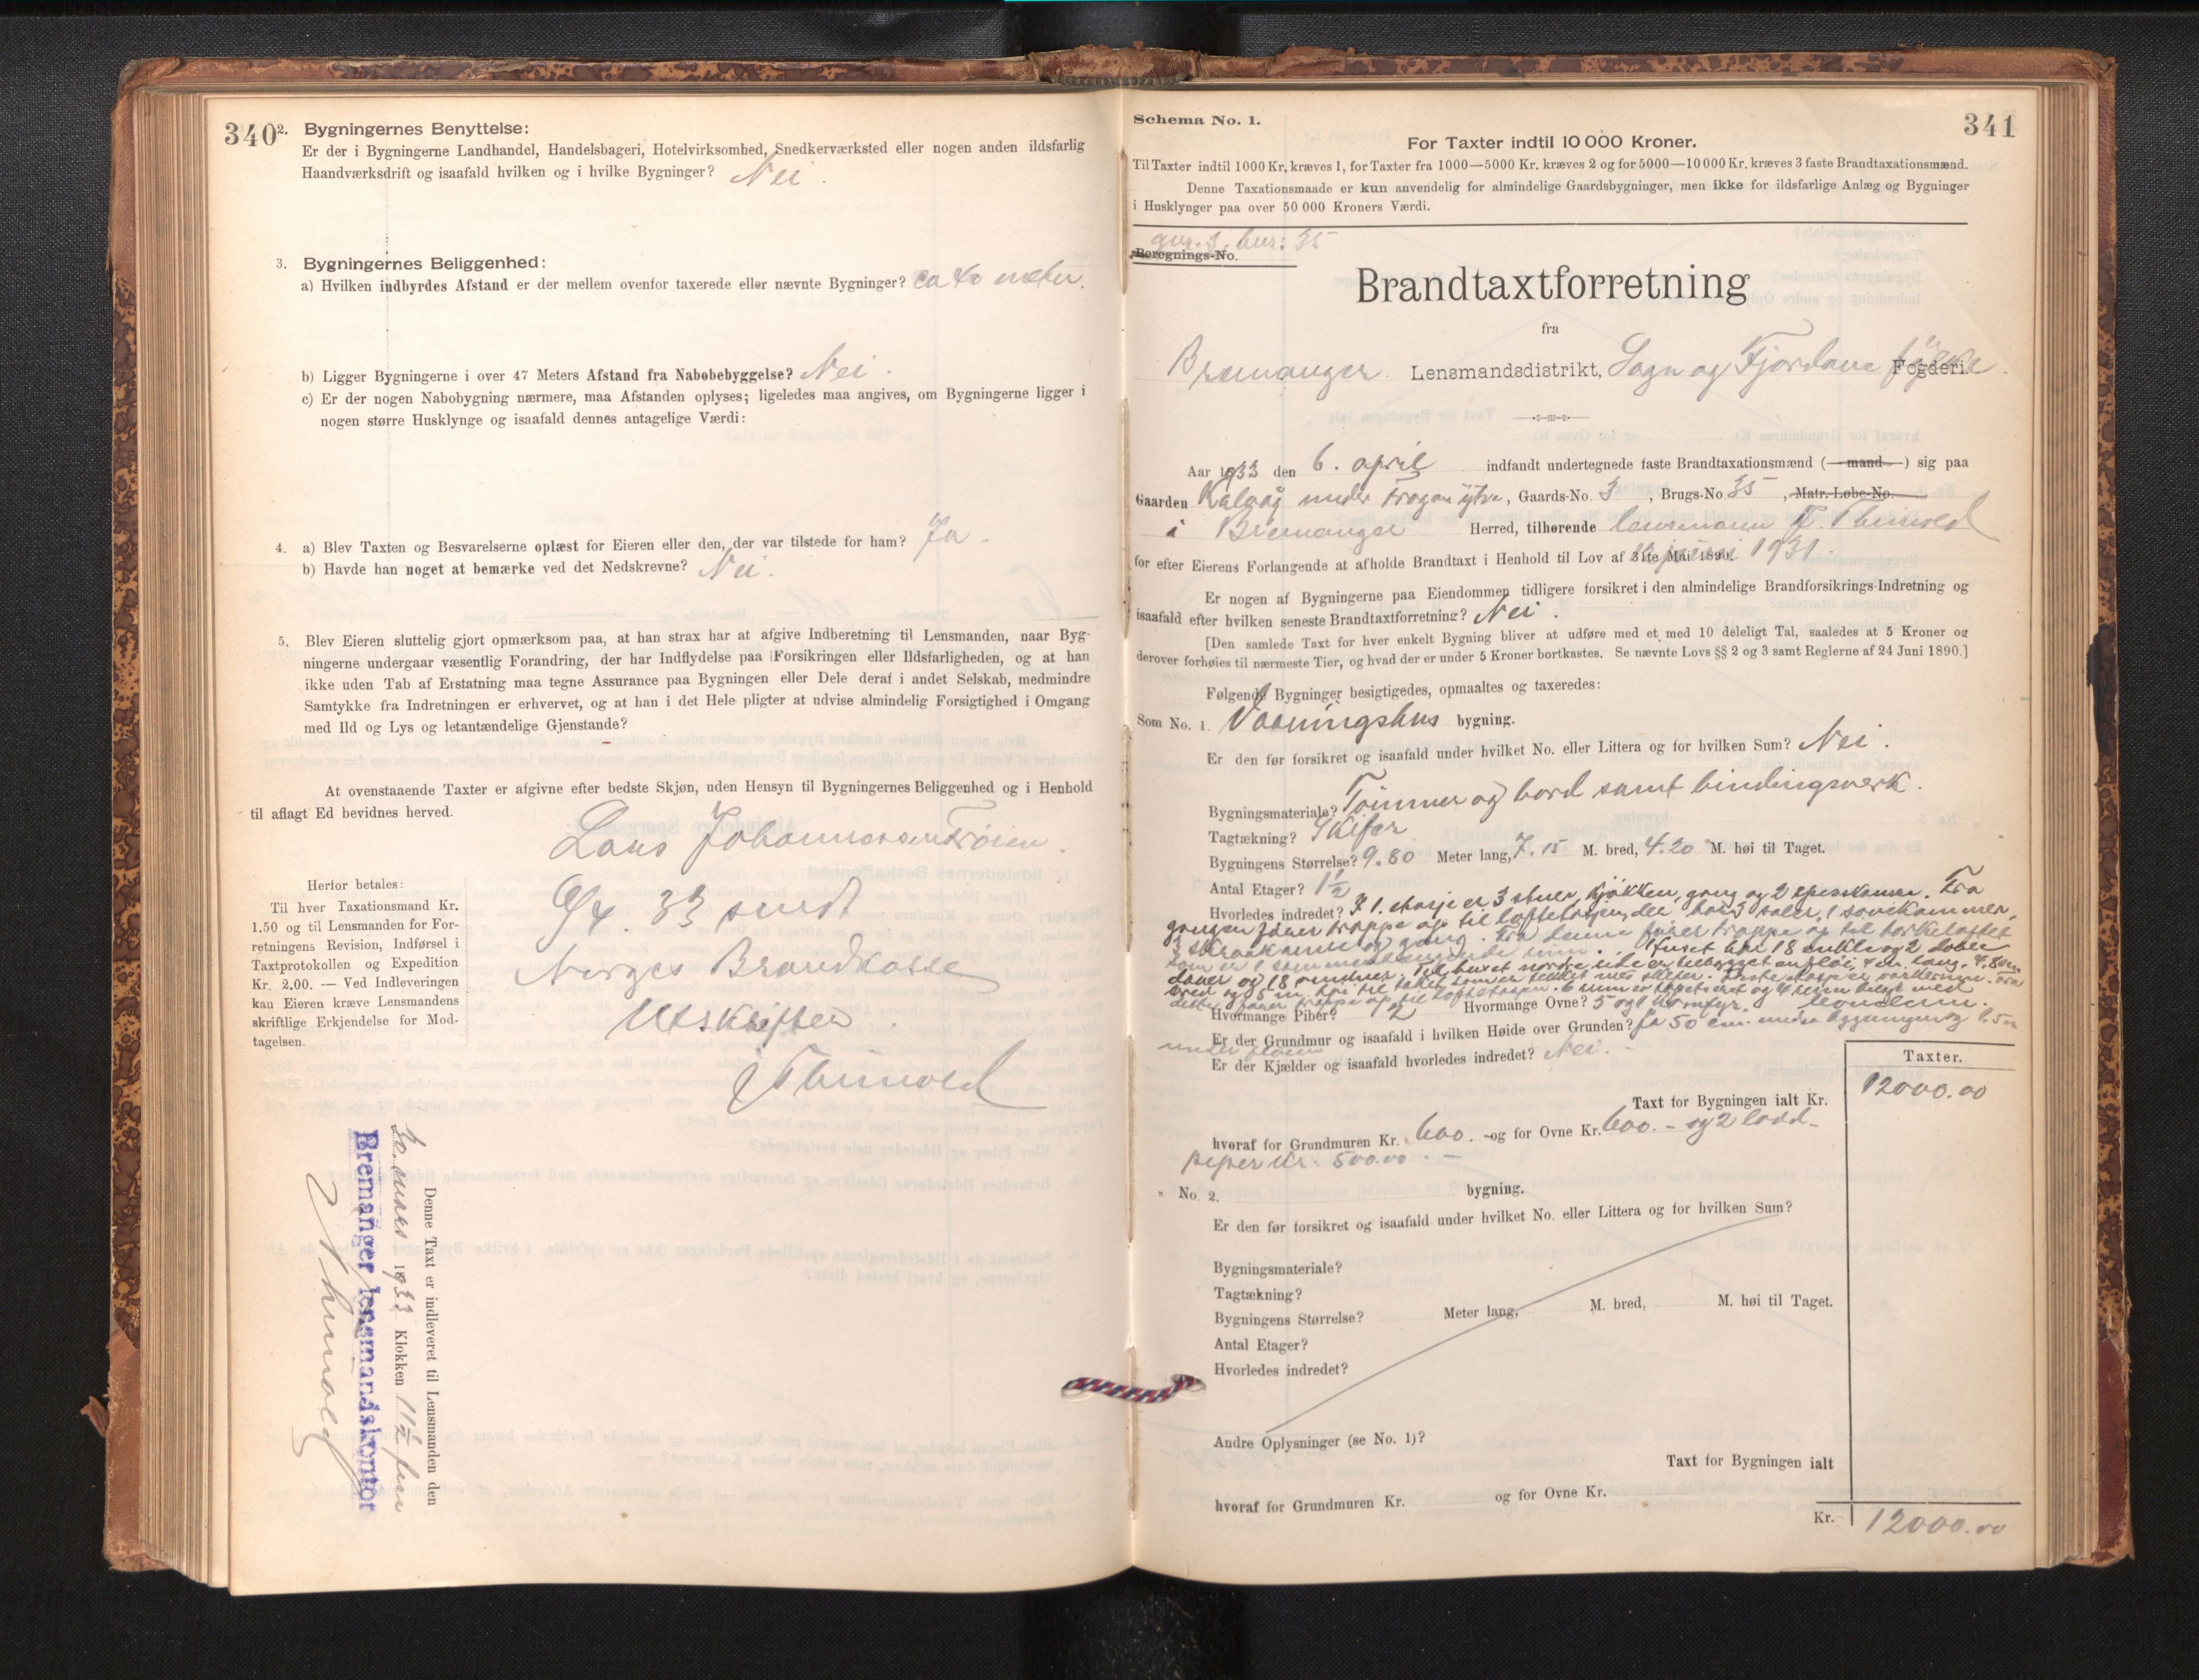 340
2. Bygningernes Benyttelse:
Er der i Bygningerne Landhandel, Handelsbageri, Hotelvirksomhed, Snedkerværksted eller nogen anden ildsfarlig
Haandværksdrift og isaafald hvilken og i hvilke Bygninger? Nei.
3. Bygningernes Beliggenhed:
a) Hvilken indbyrdes Afstand er der mellem ovenfor taxerede eller nævnte Bygninger? ca 40 meter.
b) Ligger Bygningerne i over 47 Meters Afstand fra Nabobebyggelse? Nei.
c) Er der nogen Nabobygning nærmere, maa Afstanden oplyses; ligeledes maa angives, om Bygningerne ligger i
nogen større Husklynge og isaafald dennes antagelige Værdi:
4. a) Blev Taxten og Besvarelserne oplæst for Eieren eller den, der var tilstede for ham? Ja.
b) Havde han noget at bemærke ved det Nedskrevne? Nei.
5. Blev Eieren sluttelig gjort opmærksom paa, at han strax har at afgive Indberetning til Lensmanden, naar Byg-
ningerne undergaar væsentlig Forandring, der har Indflydelse paa Forsikringen eller Ildsfarligheden, og at han
ikke uden Tab af Erstatning maa tegne Assurance paa Bygningen eller Dele deraf i andet Selskab, medmindre
Samtykke fra Indretningen er erhvervet, og at han i det Hele pligter at udvise almindelig Forsigtighed i Omgang
med Ild og Lys og letantændelige Gjenstande?
At ovenstaaende Taxter er afgivne efter bedste Skjøn, uden Hensyn til Bygningernes Beliggenhed og i Henhold
til aflagt Ed bevidnes herved.
Lars Johannessen Frøien.
Herfor betales:
Til hver Taxationsmand Kr.
1.50 og til Lensmanden for For-
retningens Revision, Indførsel i
Taxtprotokollen og Expedition
Kr. 2.00. — Ved Indleveringen
kan Eieren kræve Lensmandens
skriftlige Erkjendelse for Mod-
tagelsen.
9/4. 33 sendt
Norges Brandkasse
Utskriften.
Denne Taxt er indleveret til Lensmanden den
30. mars 1933 Klokken 11½ fm
Bremanger lensmandskontor
341
Schema No. 1.
For Taxter indtil 10 000 Kroner.
Til Taxter indtil 1000 Kr. kræves 1, for Taxter fra 1000—5000 Kr. kræves 2 og for 5000—10 000 Kr. kræves 3 faste Brandtaxationsmænd.
Denne Taxationsmaade er kun anvendelig for almindelige Gaardsbygninger, men ikke for ildsfarlige Anlæg og Bygninger
i Husklynger paa over 50 000 Kroners Værdi.
gnr. 3, bnr: 35
Beregnings-No.
Brandtaxtforretning
fra
Bremanger Lensmandsdistrikt, Sogn og Fjordane fylke Fogderi.
Aar 1933 den 6. april indfandt undertegnede faste Brandtaxationsmænd (mand) sig paa
Gaarden Kalvåg under Frøyen ytre, Gaards-No. 3, Brugs-No. 35, Matr.-Løbe-No.
i Bremanger Herred, tilhørende lensmann
for efter Eierens Forlangende at afholde Brandtaxt i Henhold til Lov af 31te Mai 1890. juni 1931.
Er nogen af Bygningerne paa Eiendommen tidligere forsikret i den almindelige Brandforsikrings-Indretning og
isaafald efter hvilken seneste Brandtaxtforretning? Nei.
[Den samlede Taxt for hver enkelt Bygning bliver at udføre med et med 10 deleligt Tal, saaledes at 5 Kroner og
derover forhøies til nærmeste Tier, og hvad der er under 5 Kroner bortkastes. Se nævnte Lovs §§ 2 og 3 samt Reglerne af 24 Juni 1890.]
Følgende Bygninger besigtigedes, opmaaltes og taxeredes:
Som No. 1. Vaaningshus bygning.
Er den før forsikret og isaafald under hvilket No. eller Littera og for hvilken Sum? Nei.
Bygningsmateriale? Tømmer og bord samt bindingsverk.
Tagtækning? Skifer
Bygningens Størrelse? 9.80 Meter lang, 7.15 M. bred, 4.20 M. høi til Taget.
Antal Etager? 1½
Hvorledes indredet? I 1. etasje er 3 stuer, kjøkken, gang og 2 spiskamer. Fra
gangen fører trappe op til loftetasjen, der har 3 saler, 1 sovekammer,
3 skraakamre og gang. Fra denne fører trappe op til tørkeloftet
som er 1 sammenhengende rum. Huset har 18 enkle og 2 doble
dører og 18 vinduer.
Hvormange Piber? 2 Hvormange Ovne? 5 og 1 komfyr.
Er der Grundmur og isaafald i hvilken Høide over Grunden? Ja 50 cm. under bygningen og 1.5 m
under fløien
Er der Kjælder og isaafald hvorledes indredet? Nei.
Taxter.
Taxt for Bygningen ialt Kr. 12000.00
hvoraf for Grundmuren Kr. 600.- og for Ovne Kr. 600.- og 2
piper kr. 500.00.-
" No. 2. bygning.
Er den før forsikret og isaafald under hvilket No. eller Littera og for hvilken Sum?
Bygningsmateriale?
Tagtækning?
Bygningens Størrelse? Meter lang, M. bred, M. høi til Taget.
Antal Etager?
Hvorledes indredet?
Andre Oplysninger (se No. 1)?
Taxt for Bygningen ialt
hvoraf for Grundmuren Kr. og for Ovne Kr.
Kr. 12000.00